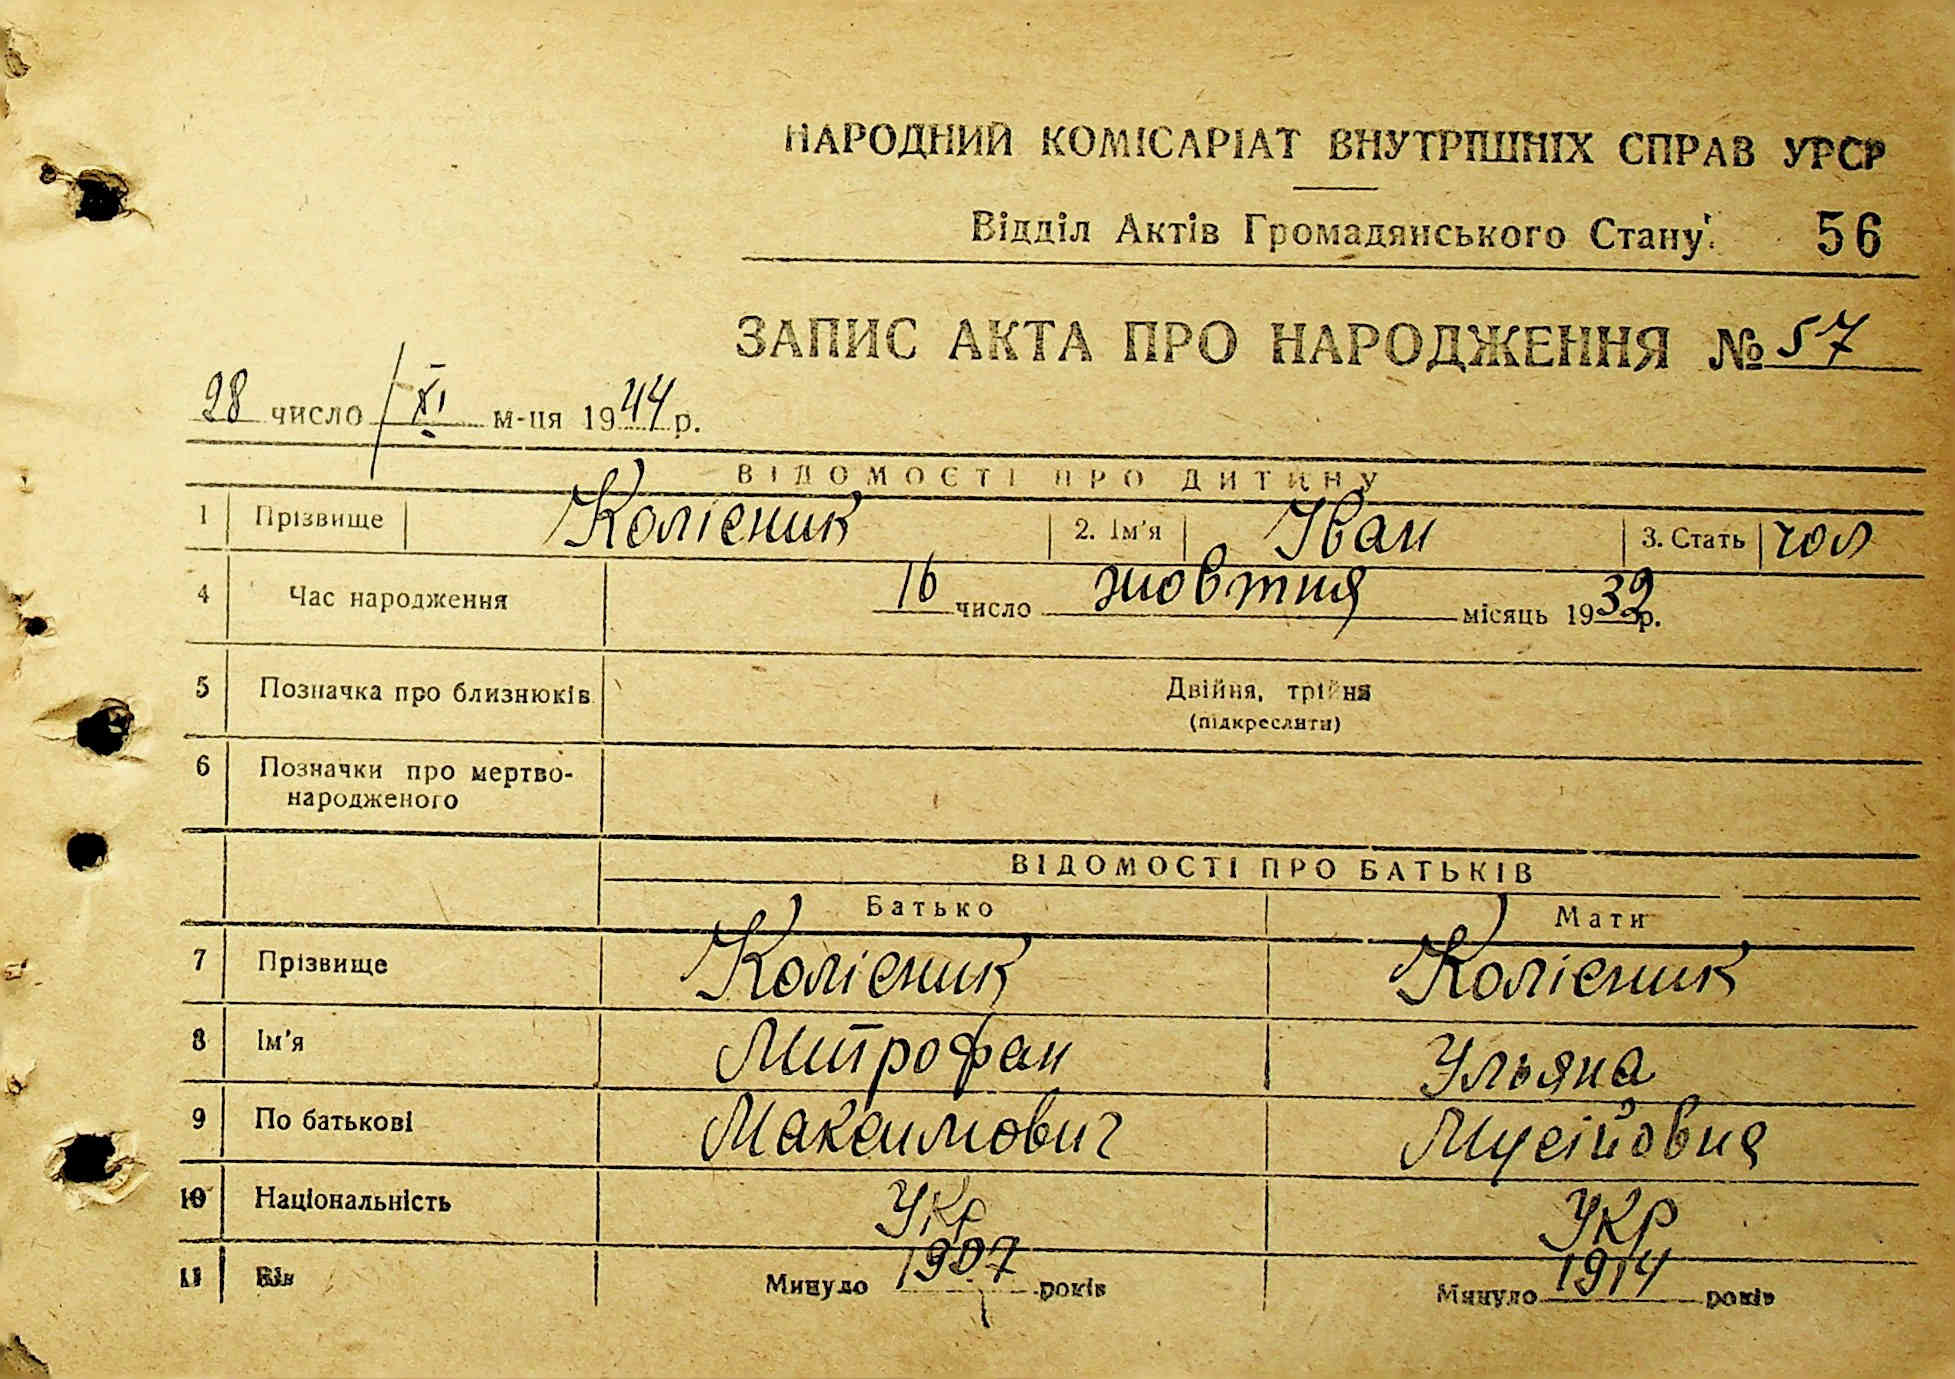 НАРОДНИЙ КОМІСАРІАТ ВНУТРІШНІХ СПРАВ УРСР
Відділ Актів Громадянського Стану. 56
ЗАПИС АКТА ПРО НАРОДЖЕННЯ № 57
28 число XI м-ця 1944 р.
ВІДОМОСТІ ПРО ДИТИНУ
1 Прізвище Колісник 2. Ім'я Іван 3. Стать чол
4 Час народження 16 число жовтня місяць 1939 р.
5 Позначка про близнюків Двійня, трійня
(підкреслити)
6 Позначки про мертво-
народженого
ВІДОМОСТІ ПРО БАТЬКІВ
Батько Мати
7 Прізвище Колісник Колісник
8 Ім'я Митрофан Ульяна
9 По батькові Максимович Мусійовна
10 Національність Укр Укр
11 Вік Минуло 1907 років Минуло 1914 років